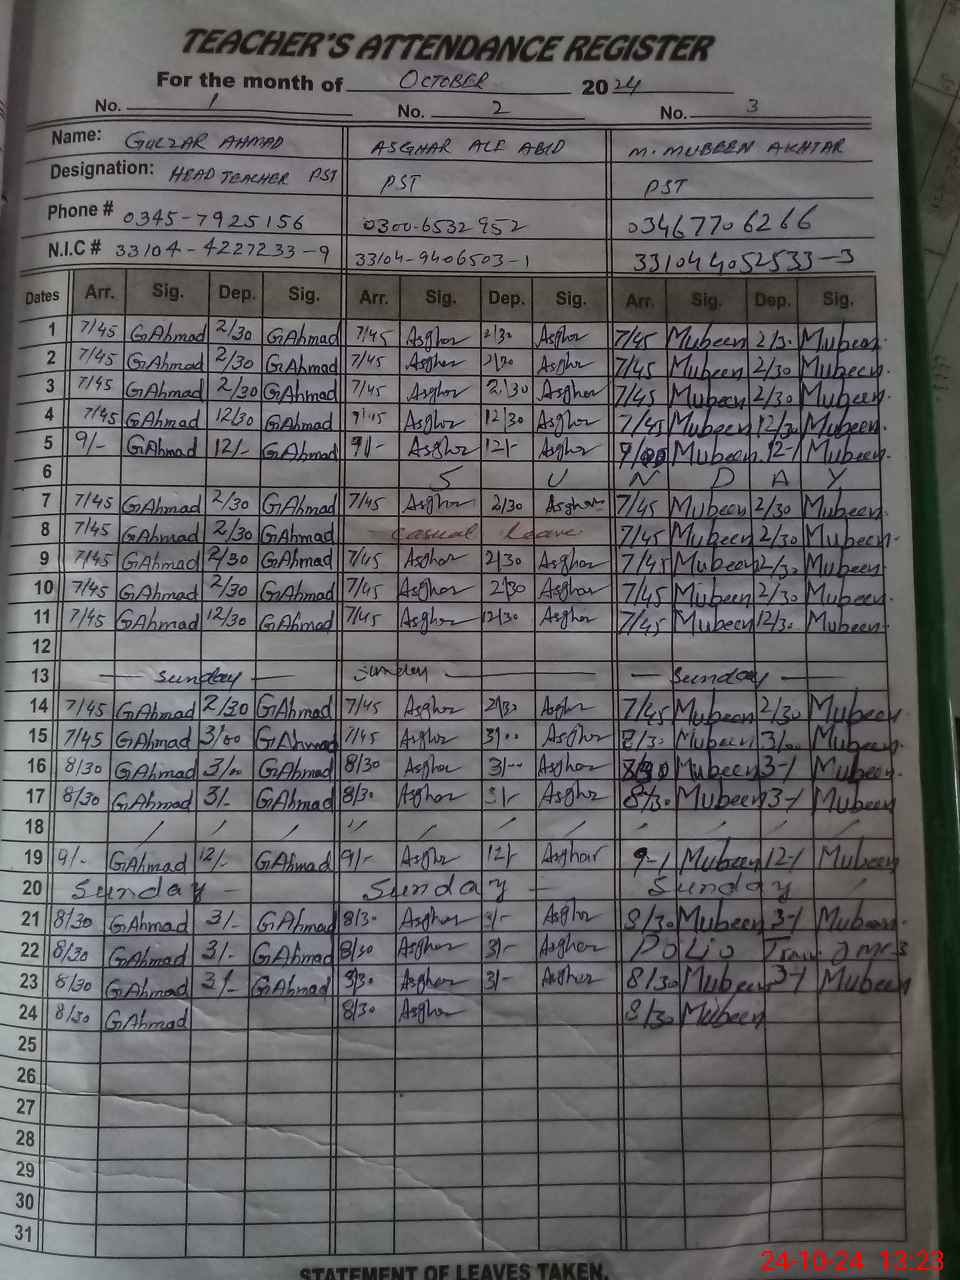 TEACHER'S ATTENDANCE REGISTER
For the month of OCTOBER 2024
No. 1 No. 2 No. 3
Name: GULZAR AHMAD ASGHAR ALI ABID M. MUBEEN AKHTAR
Designation: HEAD TEACHER PST PST PST
Phone # 0345-7925156 0300-6532952 03467706266
N.I.C # 33104-4227233-9 33104-9406503-1 331044052533-3
Dates Arr. Sig. Dep. Sig. Arr. Sig. Dep. Sig. Arr. Sig. Dep. Sig.
1 7/45 GAhmad 2/30 GAhmad 7/45 Asghar 2/30 Asghar 7/45 Mubeen 2/30 Mubeen
2 7/45 GAhmad 2/30 GAhmad 7/45 Asghar 2/30 Asghar 7/45 Mubeen 2/30 Mubeen
3 7/45 GAhmad 2/30 GAhmad 7/45 Asghar 2/30 Asghar 7/45 Mubeen 2/30 Mubeen
4 7/45 GAhmad 12/30 GAhmad Asghar 12/30 Asghar 7/45 Mubeen 12/30 Mubeen
5 9/- GAhmad 12/- GAhmad 9/- Asghar 12/- Asghar Mubeen 12-/ Mubeen
6 S U N D A Y
7 7/45 GAhmad 2/30 GAhmad 7/45 Asghar 2/30 Asghar 7/45 Mubeen 2/30 Mubeen
8 7/45 GAhmad 2/30 GAhmad casual leave 7/45 Mubeen 2/30 Mubeen
9 7/45 GAhmad 2/30 GAhmad 7/45 Asghar 2/30 Asghar 7/45 Mubeen 2/30 Mubeen
10 7/45 GAhmad 2/30 GAhmad 7/45 Asghar 2/30 Asghar 7/45 Mubeen 2/30 Mubeen
11 7/45 GAhmad 12/30 GAhmad 7/45 Asghar 12/30 Asghar 7/45 Mubeen 12/30 Mubeen
12
13 Sunday Sunday Sunday
14 7/45 GAhmad 2/30 GAhmad 7/45 Asghar 2/30 Asghar 7/45 Mubeen 2/30 Mubeen
15 7/45 GAhmad 3/00 GAhmad 7/45 Asghar 3/00 Asghar 8/30 Mubeen 3/00 Mubeen
16 8/30 GAhmad 3/00 GAhmad 8/30 Asghar 3/-- Asghar 8/30 Mubeen 3-/ Mubeen
17 8/30 GAhmad 3/- GAhmad 8/30 Asghar 3/- Asghar 8/30 Mubeen 3-/ Mubeen
18 / / / " / / / / / / /
19 9/- GAhmad 12/- GAhmad 9/- Asghar 12/- Asghar 9-/ Mubeen 12-/ Mubeen
20 Sunday - Sunday - Sunday
21 8/30 GAhmad 3/- GAhmad 8/30 Asghar 3/- Asghar 8/30 Mubeen 3-/ Mubeen
22 8/30 GAhmad 3/- GAhmad 8/30 Asghar 3/- Asghar Polio
23 8/30 GAhmad 3/- GAhmad 8/30 Asghar 3/- Asghar 8/30 Mubeen 3-/ Mubeen
24 8/30 GAhmad 8/30 Asghar 8/30 Mubeen
25
26
27
28
29
30
31
STATEMENT OF LEAVES TAKEN.
24-10-24 13:23